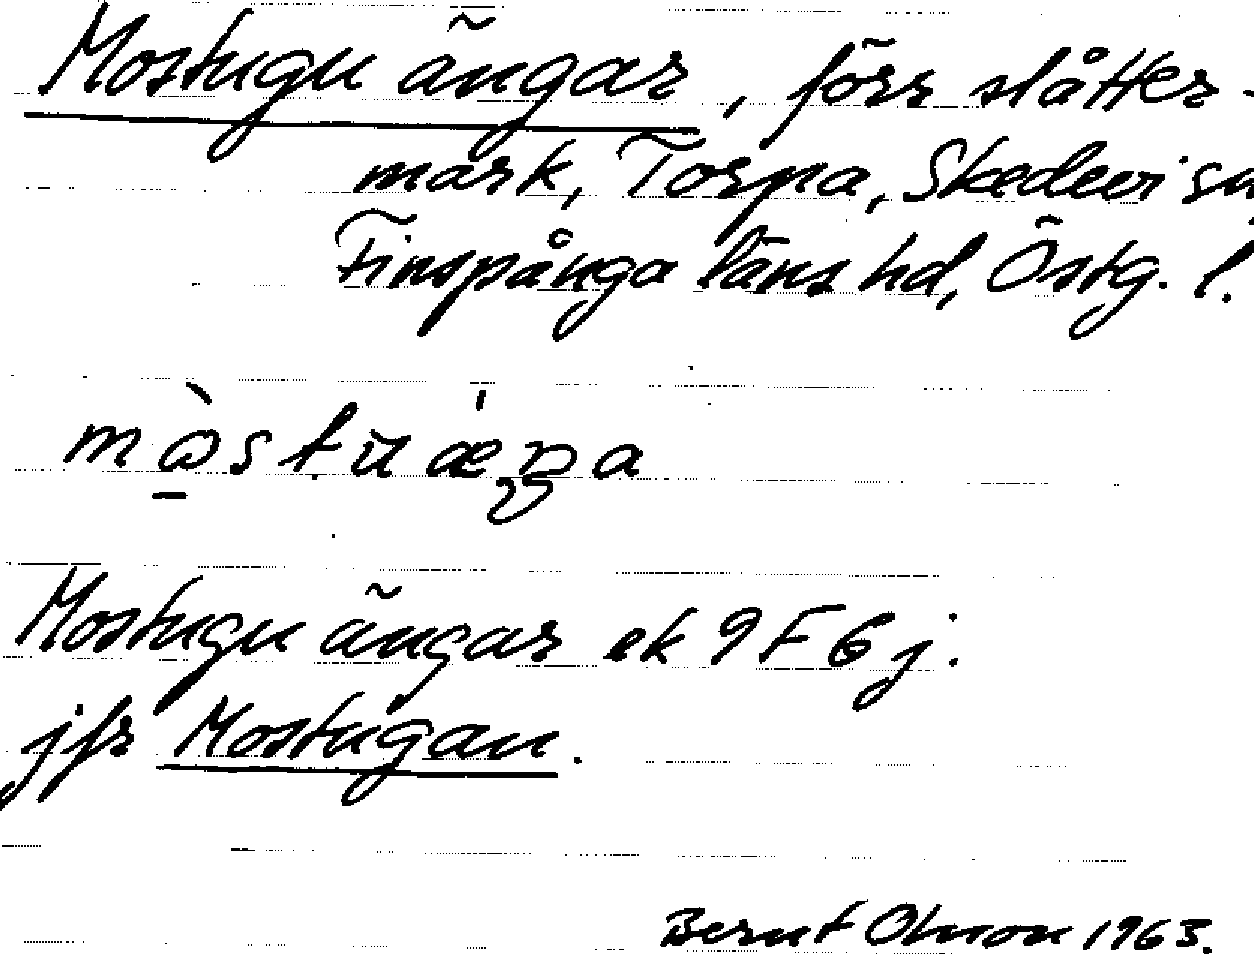 Mostugu ängar, förr slåtter-
mark, Torpa, Skedevi sn,
Finspånga läns hd, Östg. l.
Mostugu ängar ek 9F6j.
jfr Mostugan.
Bernt Olsson 1963.